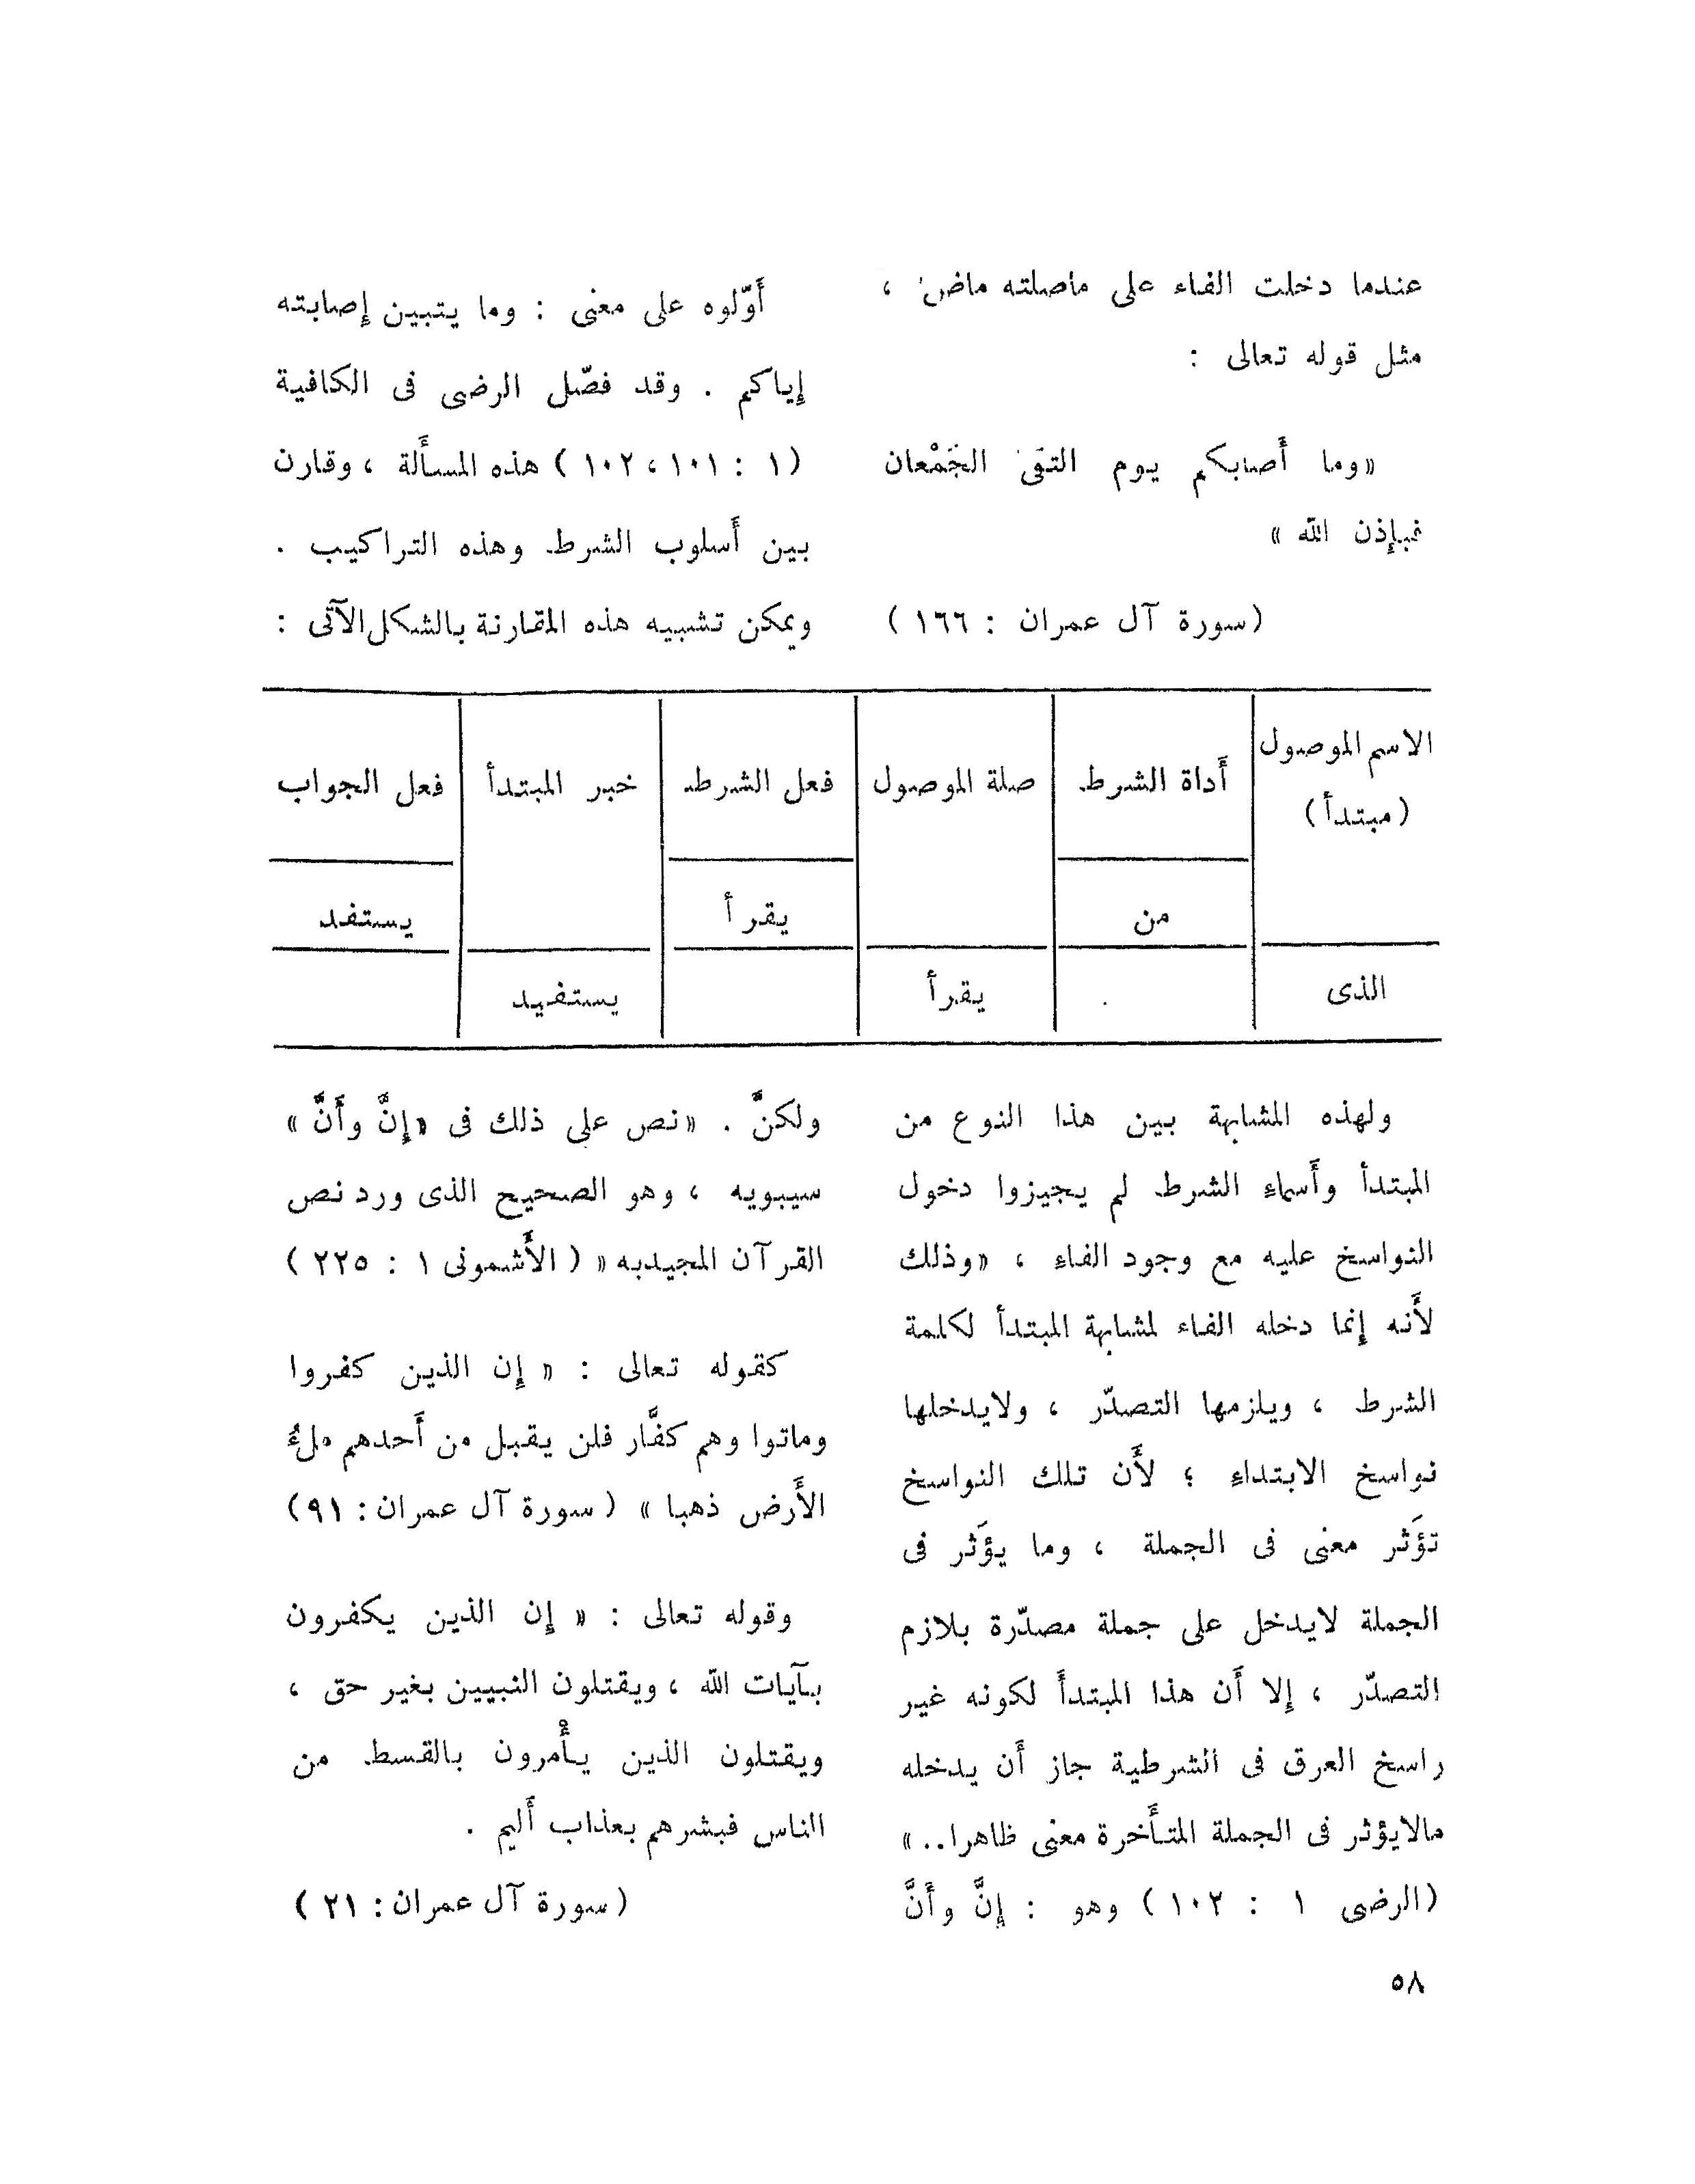 عندما دخلت الفاء على ماصلته ماض ،
مثل قوله تعالى :
«وما أصابكم يوم التقى الجَمْعان
فبإذن الله »
(سورة آل عمران : ١٦٦ )
أوّلوه على معنى : وما يتبين إصابته
إياكم . وقد فصّل الرضى فى الكافية
(١ : ١٠١ ، ١٠٢ ) هذه المسألة ، وقارن
بين أسلوب الشرط وهذه التراكيب .
ويمكن تشبيه هذه المقارنة بالشكل الآتى :
الاسم الموصول
(مبتدأ) أداة الشرط صلة الموصول فعل الشرط خبر المبتدأ فعل الجواب
من يقرأ يستفد
الذى يقرأ يستفيد
ولهذه المشابهة بين هذا النوع من
المبتدأ وأسماء الشرط لم يجيزوا دخول
النواسخ عليه مع وجود الفاء ، «وذلك
لأنه إنما دخله الفاء لمشابهة المبتدأ لكلمة
الشرط ، ويلزمها التصدّر ، ولايدخلها
نواسخ الابتداء ؛ لأن تلك النواسخ
تؤثر معنى فى الجملة ، وما يؤثر فى
الجملة لايدخل على جملة مصدّرة بلازم
التصدّر ، إلا أن هذا المبتدأ لكونه غير
راسخ العرق فى الشرطية جاز أن يدخله
مالايؤثر فى الجملة المتأخرة معنى ظاهرا..»
(الرضى ١ : ١٠٢ ) وهو : إنَّ وأنَّ
ولكنَّ . «نص على ذلك فى «إنَّ وأنَّ »
سيبويه ، وهو الصحيح الذى ورد نص
القرآن المجيدبه » ( الأشمونى ١ : ٢٢٥ )
كقوله تعالى : « إن الذين كفروا
وماتوا وهم كفَّار فلن يقبل من أحدهم ملءُ
الأرض ذهبا » ( سورة آل عمران : ٩١)
وقوله تعالى : « إن الذين يكفرون
بآيات الله ، ويقتلون النبيين بغير حق ،
ويقتلون الذين يأْمرون بالقسط من
الناس فبشرهم بعذاب أليم .
( سورة آل عمران : ٢١ )
٥٨